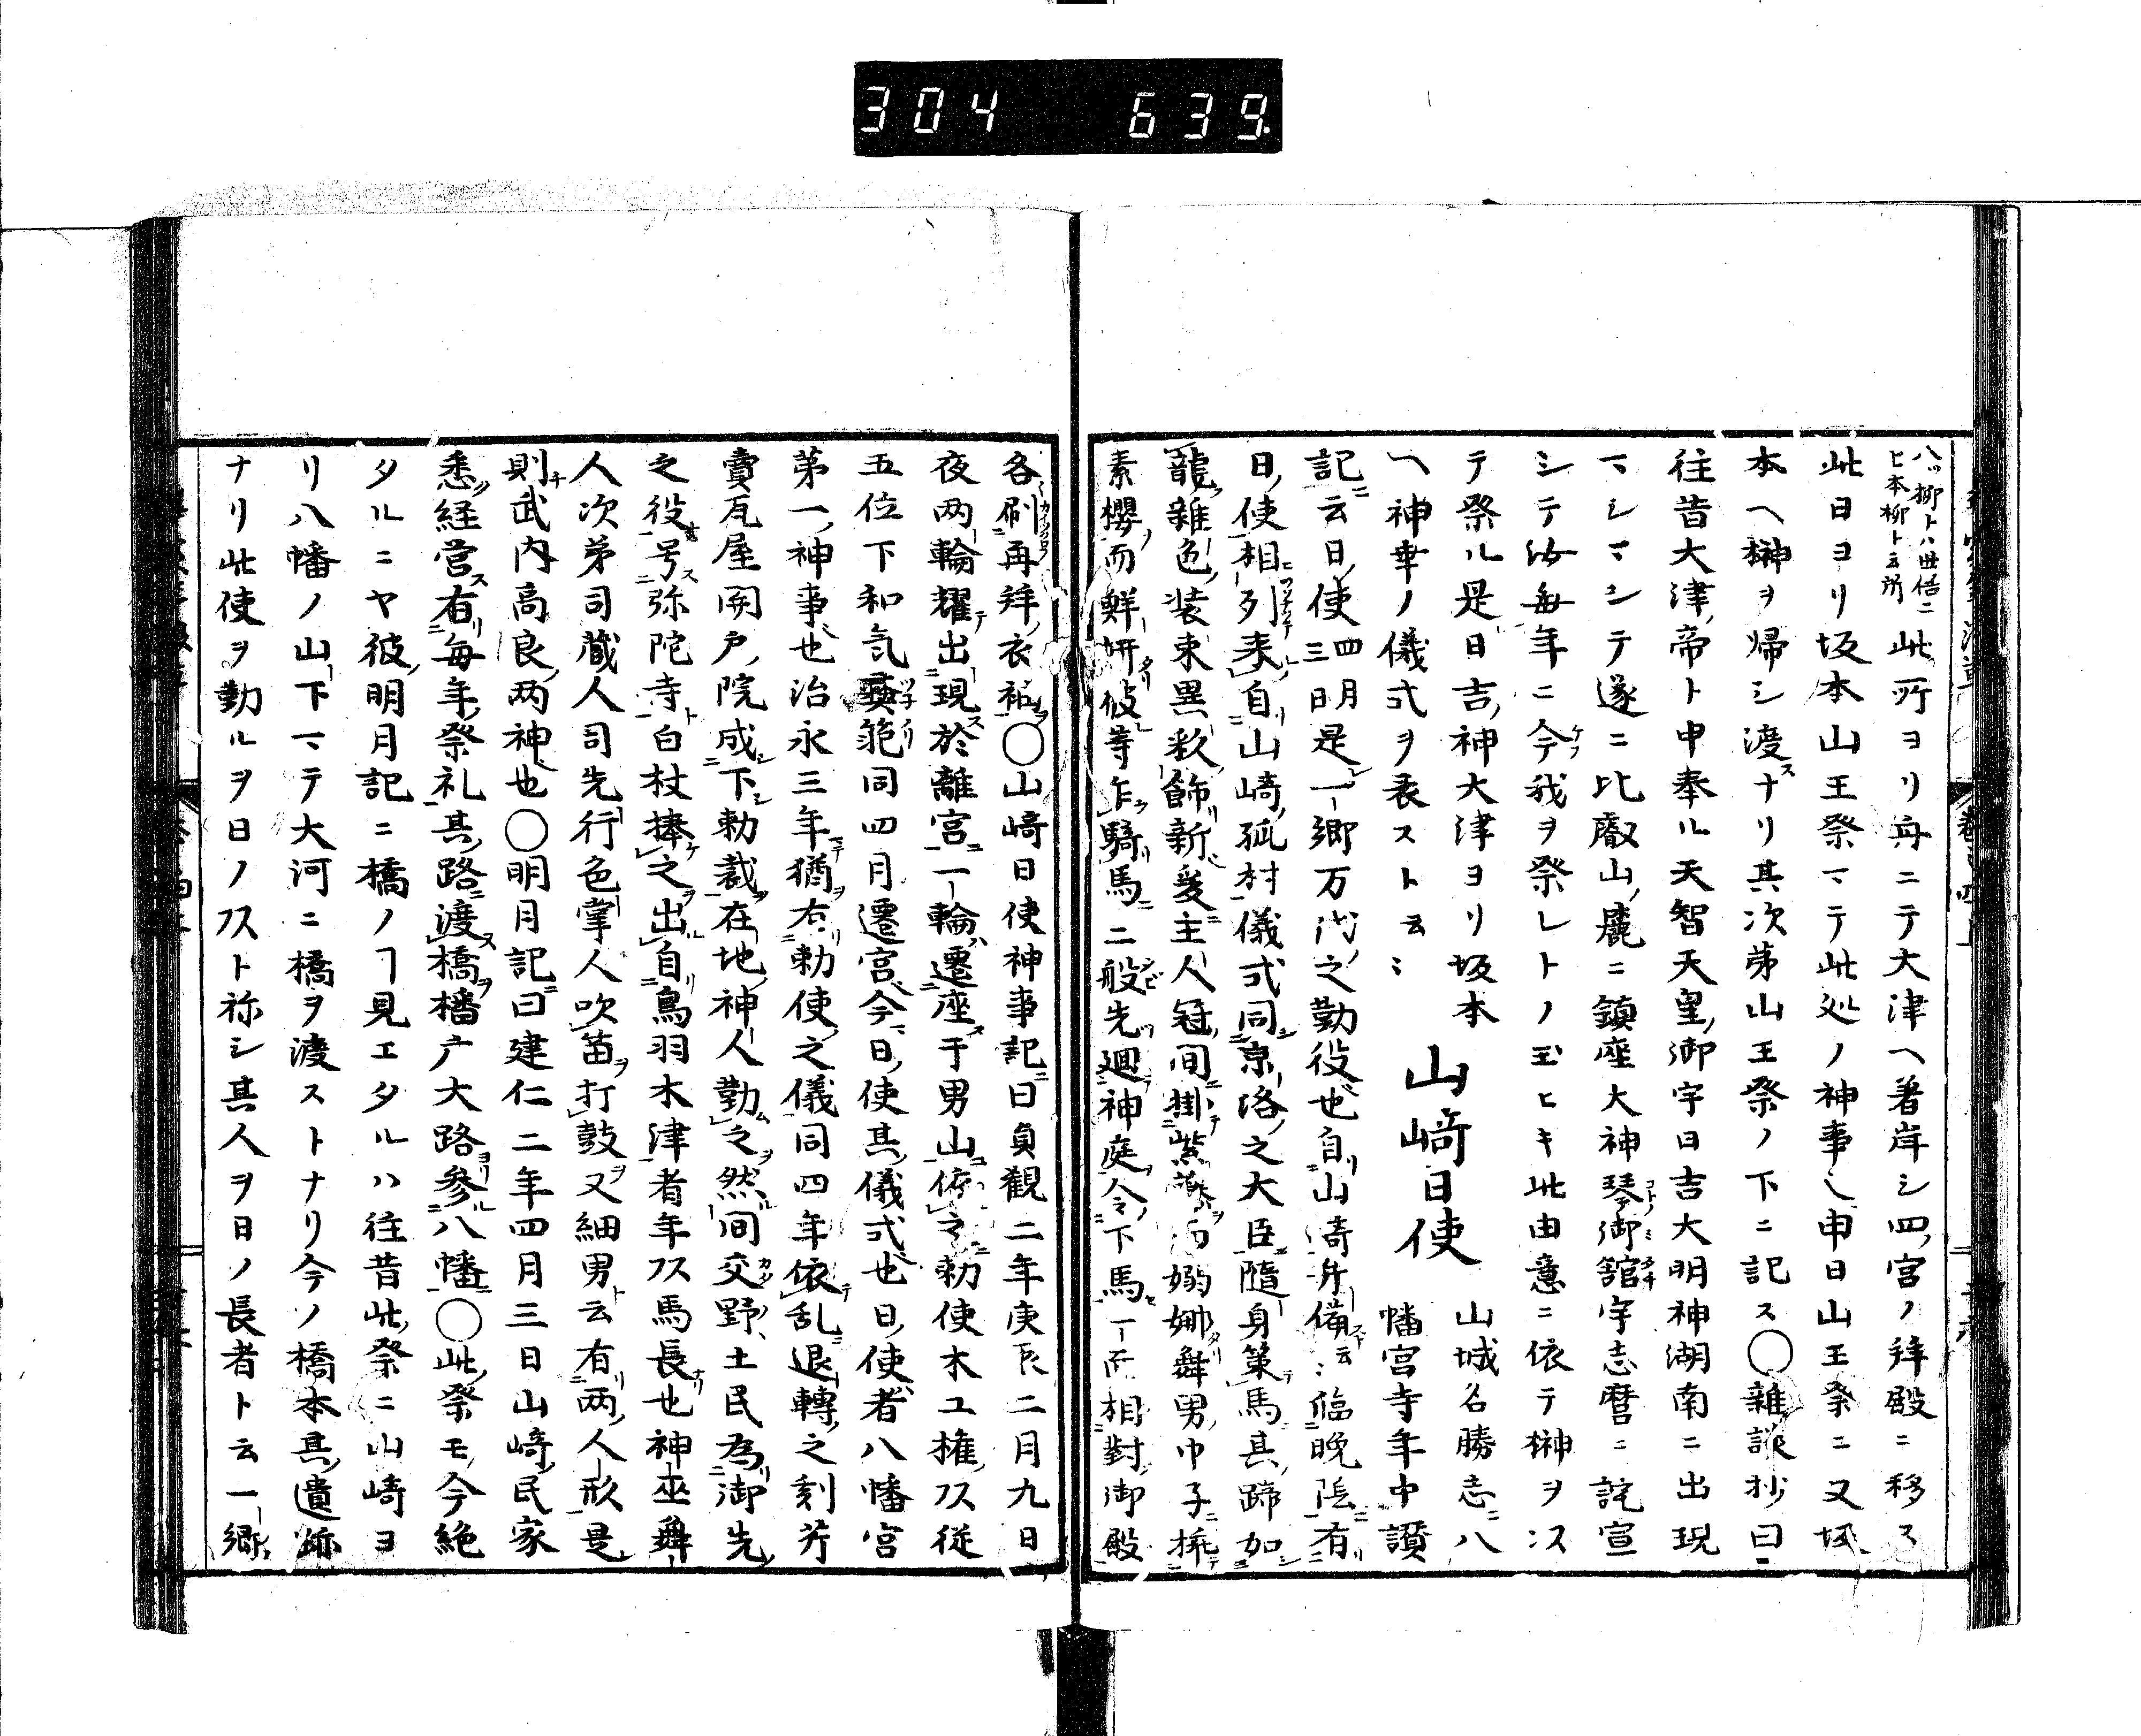 304 639.
八ツ柳トハ世俗ニ
ヒ本柳ト云所
此所ヨリ舟ニテ大津ヘ着岸シ四宮ノ拜殿ニ移ス
此日ヨリ坂本山王祭マテ此処ノ神事也申日山王祭ニ又坂
本ヘ榊ヲ帰シ渡スナリ其次第山王祭ノ下ニ記ス〇雜談抄曰
往昔大津帝ト申奉ル天智天皇御宇日吉大明神湖南ニ出現
マシマシテ遂ニ比叡山麓ニ鎮座大神琴御館宇志麿ニ託宣
シテ汝毎年ニ今我ヲ祭レトノ玉ヒキ此由意ニ依テ榊ヲ以
テ祭ル是日吉神大津ヨリ坂本
ヘ神幸ノ儀式ヲ表スト云〻
山﨑日使
山城名勝志ニ八
幡宮寺年中讃
記云日使四月三日是一郷万代之勤役也自山崎舟備云〻臨晩陰有
日使相列来自山崎孤村儀式同京洛之大臣隨身策馬其蹄加
龍雜色装束異粧飾新爰主人冠間掛紫藤而嫋娜舞男巾子挿
素櫻而鮮妍彼等乍騎馬二般先廻神庭令下馬一而相對御殿
各刷再拜衣袖〇山﨑日使神事記曰貞觀二年庚辰二月九日
夜両輪耀出現於離宮一輪遷座于男山依之勅使木工權以従
五位下和氣彛範同四月遷宮今日使其儀式也日使者八幡宮
第一神事也治永三年猶右勅使之儀同四年依乱退轉之刻於
賣瓦屋関戸院成下勅裁在地神人勤之然間交野土民為御先
之役号弥陀寺白杖捧之出自鳥羽木津者年以馬長也神巫舞
人次第司蔵人司先行色掌人吹笛打鼓又細男云有両人形是
則武内高良両神也〇明月記曰建仁二年四月三日山﨑民家
悉経営有毎年祭礼其路渡橋橋广大路參八幡〇此祭モ今絶
タルニヤ彼明月記ニ橋ノ見エタルハ往昔此祭ニ山崎ヨ
リ八幡ノ山下マテ大河ニ橋ヲ渡ストナリ今ノ橋本其遺跡
ナリ此使ヲ勤ルヲ日ノ以ト称シ其人ヲ日ノ長者ト云一郷